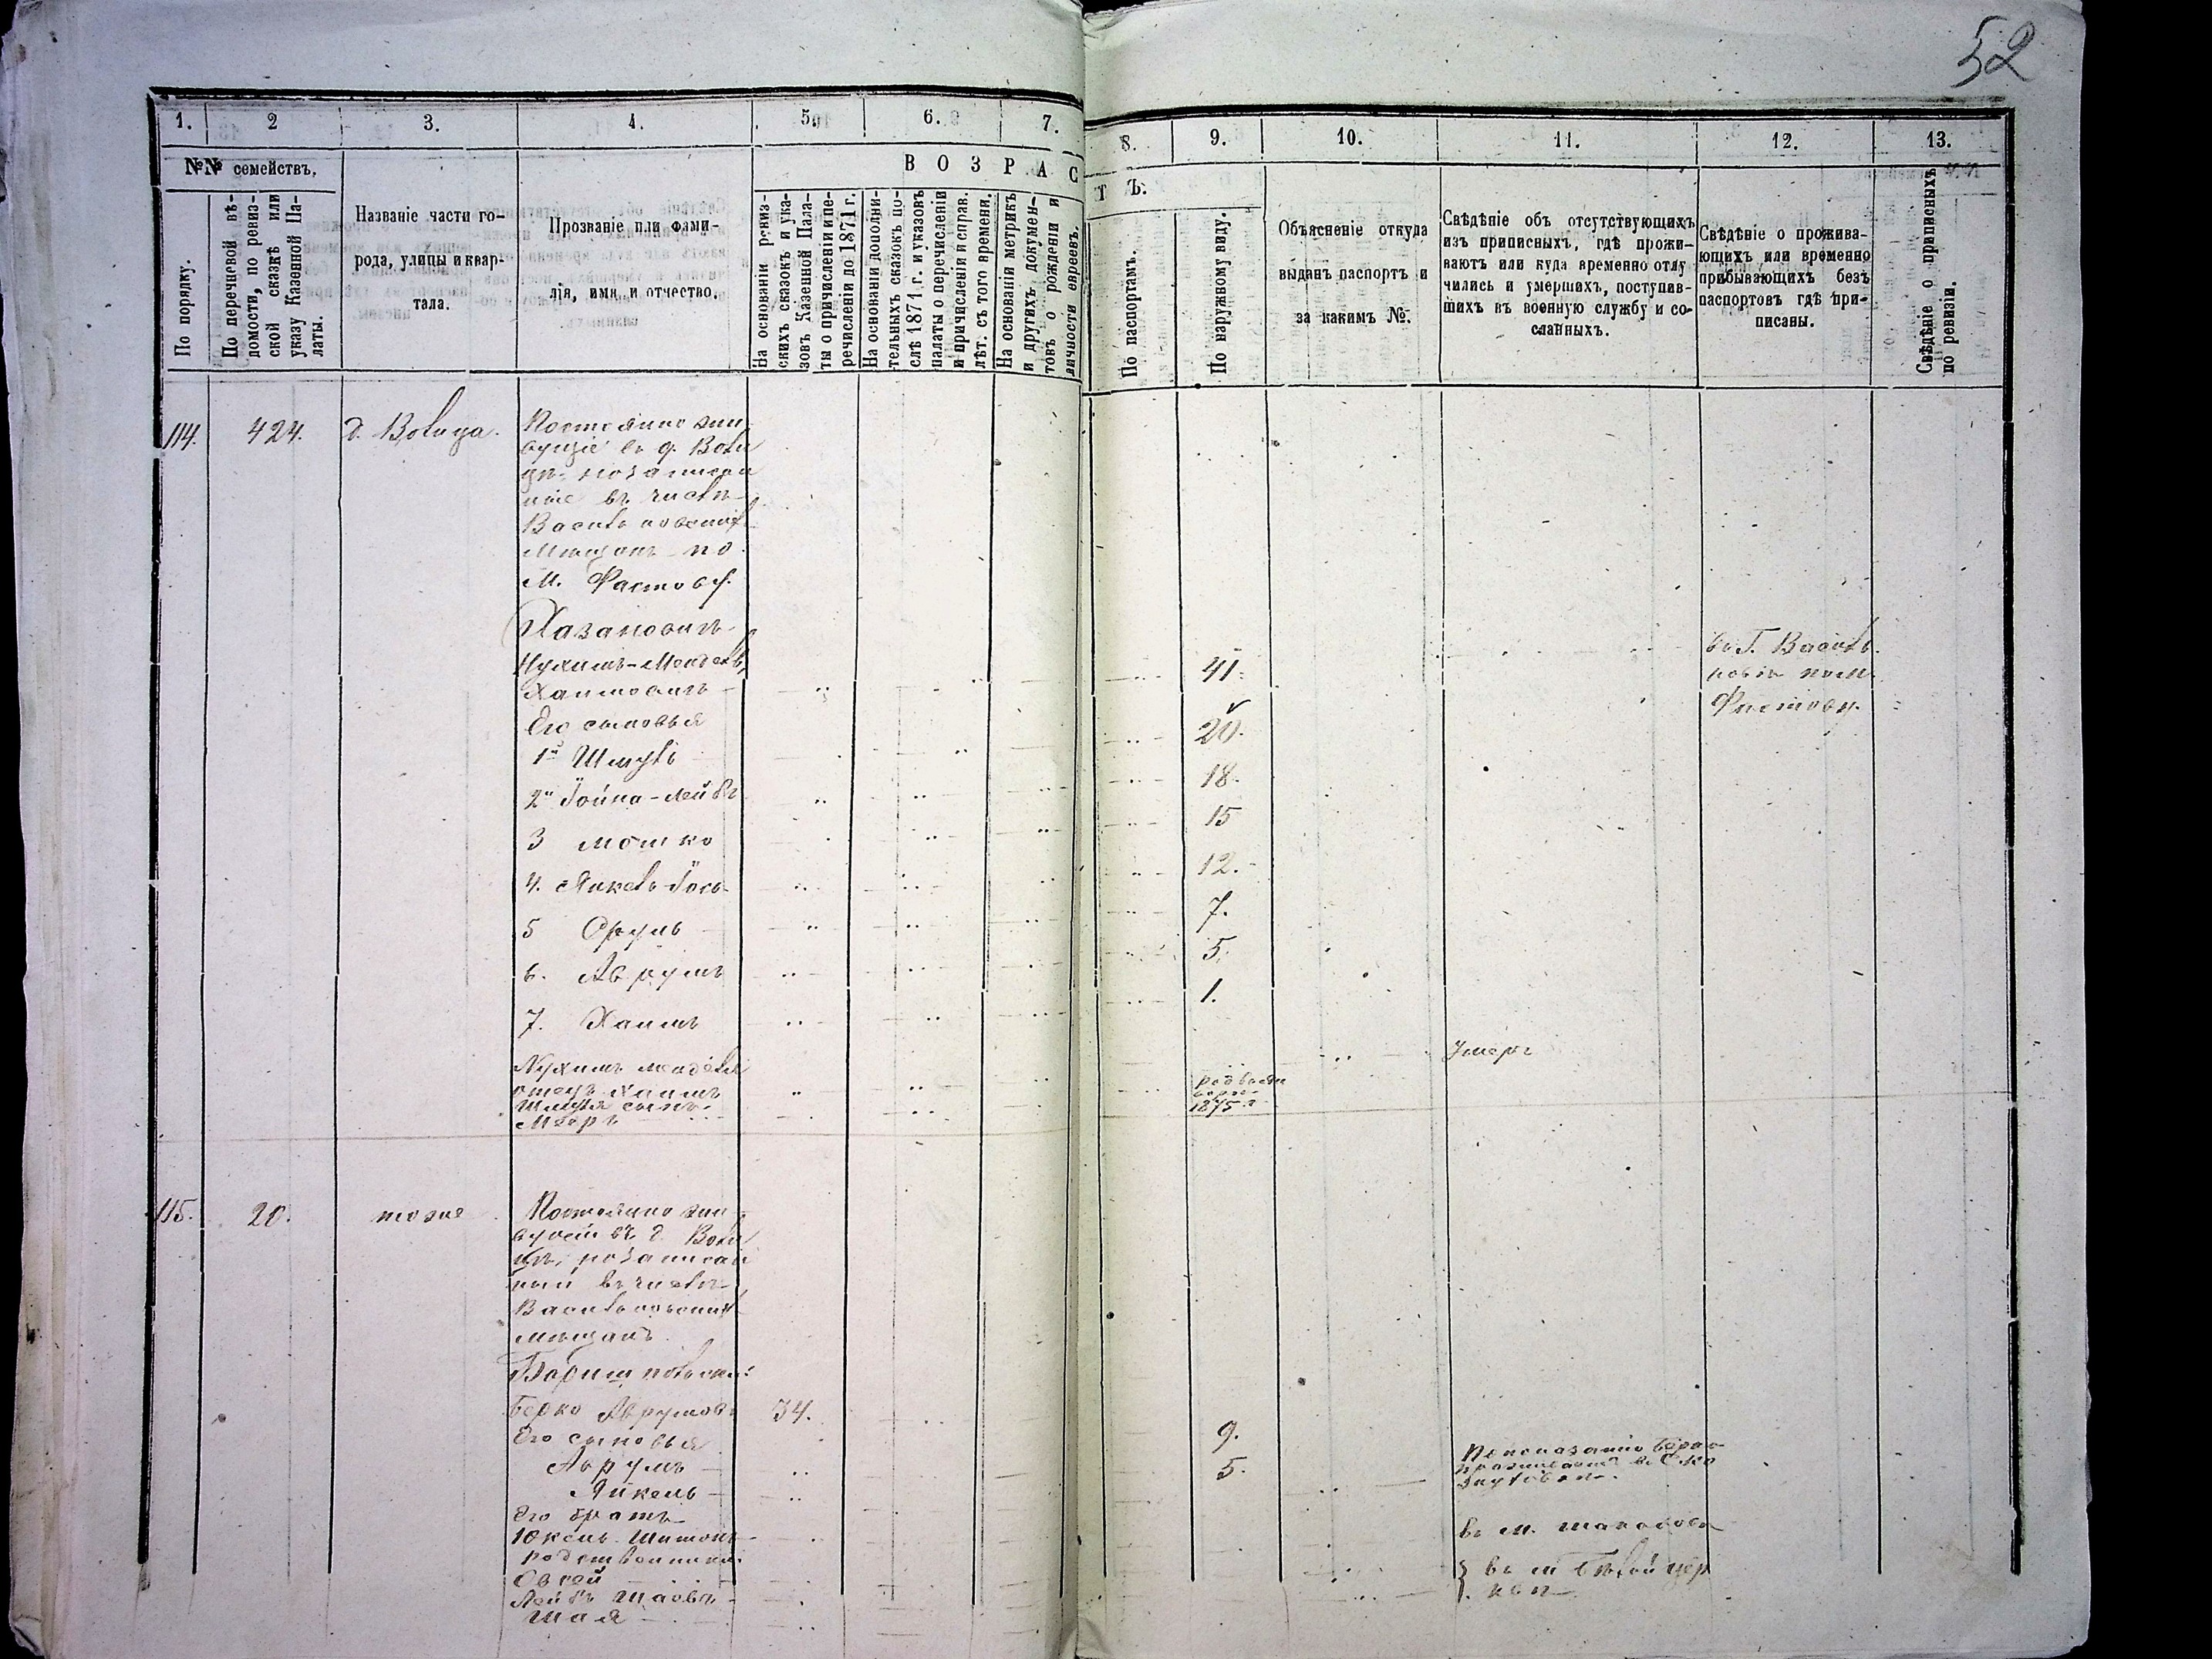 52
1. 2 3. 4. 5. 6. 7. 8. 9. 10. 11. 12. 13.
№№ семействъ.
ВОЗРАСТЪ.
По порядку.
По перечневой вѣ-
домости, по ревиз-
ской сказкѣ или
указу Казенной Па-
латы.
Названіе части го-
рода, улицы и квар-
тала.
Прозваніе или фами-
лія, имя и отчество.
На основаніи ревиз-
скихъ сказокъ и ука-
зовъ Казенной Пала-
ты о причисленіи и пе-
речисленіи до 1871 г.
На основаніи дополни-
тельныхъ сказокъ по-
слѣ 1871 г. и указовъ
палаты о перечисленіи
и причисленіи и справ.
лѣт. съ того времени.
На основаніи метрикъ
и другихъ докумен-
товъ о рожденіи и
личности евреевъ.
По паспортамъ.
По наружному виду.
Объясненіе откуда
выданъ паспортъ и
за какимъ №.
Свѣдѣніе объ отсутствующихъ
изъ приписныхъ, гдѣ прожи-
ваютъ или куда временно отлу
чились и умершихъ, поступив-
шихъ въ военную службу и со-
сланныхъ.
Свѣдѣніе о прожива-
ющихъ или временно
прибывающихъ безъ
паспортовъ гдѣ при-
писаны.
Свѣдѣніе о приписныхъ
по ревизіи.
114. 424. д. Волица. Постоянно жи
вущіе въ д. Воли
цѣ, но записан
ные въ числѣ
Васильковских
Мѣщанъ по
М. Фастову.
Хазановичъ
Нухимъ-Мендель
Хаимовичъ 41.
въ Г. Василь
ковѣ по м.
Фастову.
Его сыновья
1й Шмуль 20.
2й Іойна-Лейбъ 18.
3 Мошко 15
4. Янкель-Іось 12.
5 Сруль 7.
6. Аврумъ 5.
7. Хаимъ 1.
Нухимъ Менделя
отецъ Хаимъ Умеръ
Шмуля сынъ
Мееръ
1875 г.
115. 20. тоже Постоянно жи
вущій въ д. Воли
цѣ, но записан
ный въ числѣ
Васильковских
мѣщанъ.
Боришпольскій
Берко Аврумовъ 34.
Его сыновья
Аврумъ 9.
Янкель 5.
По показанію Берко
проживаетъ въ
Его братъ
Юкель Шимонъ въ м.
родственники
Овсей
Лейбъ Шаевъ
Шая
въ м Бѣлой Цер
квѣ